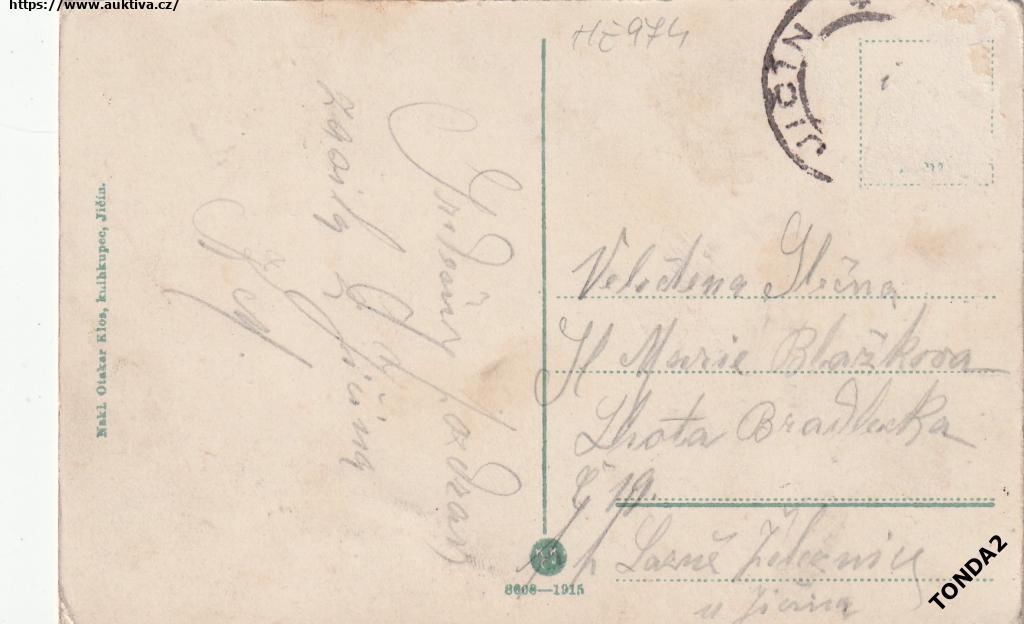 https://www.auktiva.cz/
HŽ974
JIČÍN
Nakl. Otakar Klos, knihkupec, Jičín.
Srdečný pozdrav
zasílá
z Jičína
Velectěná Slečna
Sl Marie Blažkova
Lhota Bradlecka
č 19.
p Lazně Železnice
u Jičína
8608—1915
TONDA2